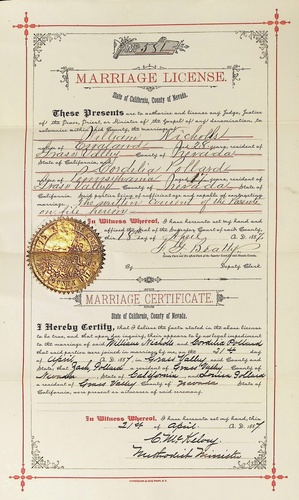 551
MARRIAGE LICENSE.
State of California, County of Nevada.
These Presents are to authorize and license any Judge, Justice
of the Peace, Priest, or Minister of the Gospel of any denomination to
solemnize within said County, the marriage of
William Nicholls
England 28 years, resident of
Grass Valley County of Nevada
State of California, and
Cordelia Pollard
Pennsylvania years, resident of
Grass Valley County of Nevada
State of California, said parties being of sufficient age and capable of contracting
marriage. The written consent of the Parents
on file herein
In Witness Whereof, I have hereunto set my hand and
affixed the Seal of the Superior Court of said County,
this day of April A. D. 1887
County Clerk and ex-officio Clerk of the Superior Court of said Nevada County.
By Deputy Clerk
MARRIAGE CERTIFICATE.
State of California, County of Nevada.
I Hereby Certify, that I believe the facts stated in the above license
to be true, and that upon due inquiry there appears to be no legal impediment
to the marriage of said William Nicholls and Cordelia Pollard
that said parties were joined in marriage by me, on the 21st day
of April A. D. 1887, in Grass Valley said County and
State; that Pollard a resident of Grass Valley County of
Nevada State of California, and Pollard
a resident of Grass Valley County of Nevada State of
California, were present as witnesses of said ceremony.
In Witness Whereof, I have hereunto set my hand, this
21st day of April A. D. 1887
Methodist Minister